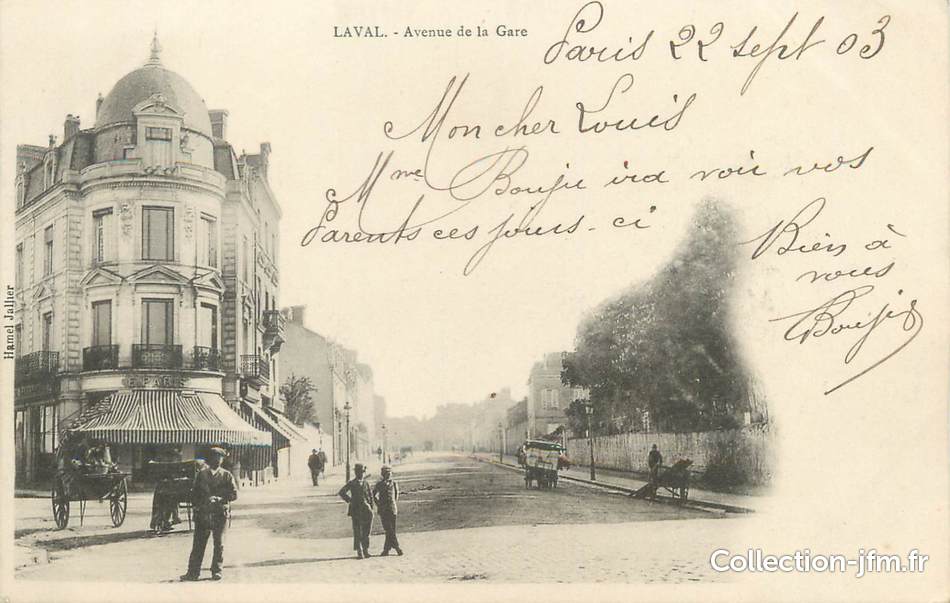 LAVAL. - Avenue de la Gare
Paris 22 sept 03
Mon cher Louis
Mme Bouju ira voir vos
Parents ces jours-ci
Bien à
vous
Bouju
Hamel Jallier
E. PARIS
Collection-jfm.fr